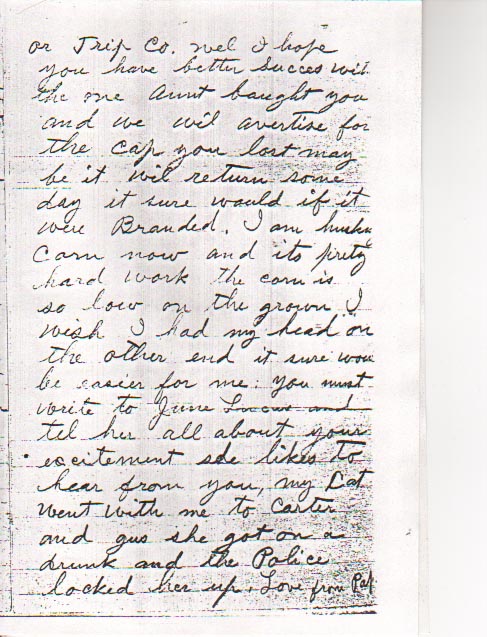 or Trip Co. wel I hope
you have better Succes wit
the one Aunt baught you
and we wil avertise for
the cap you lost may
be it wil return some
day it sure would if it
were Branded. I am husk
Corn now and its prety
hard work the corn is
so low on the grown I
wish I had my head on
the other end it sure wou
be easier for me. you must
write to June Lucus and
tel her all about your
excitement sde likes to
hear from you, my Cat
went with me to Carter
and gus she got on a
drunk and the Police
locked her up. Love from Pa